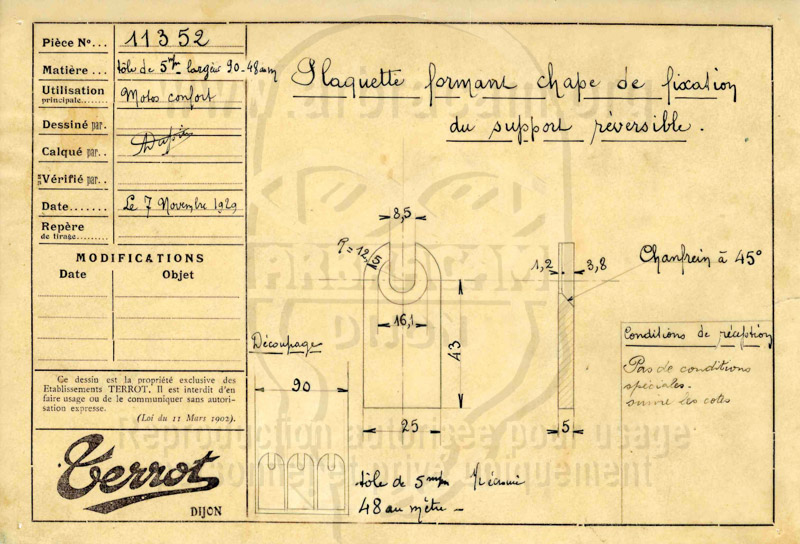 Pièce Nº... 11352
Matière... tôle de 5 m/m largeur 90 - 48 au m
Utilisation
principale........ Motos confort
Dessiné par.
Calqué par..
Vérifié par..
Date....... Le 7 Novembre 1929
Repère
de tirage........
MODIFICATIONS
Date Objet
Ce dessin est la propriété exclusive des
Etablissements TERROT. Il est interdit d'en
faire usage ou de le communiquer sans autori-
sation expresse.
(Loi du 11 Mars 1902).
Terrot
DIJON
Plaquette formant chape de fixation
du support réversible.
8,5
R = 12,5
16,1
43
25
1,2
3,8
5
Chanfrein à 45°
Découpage
90
tôle de 5 m/m
48 au mètre -
Conditions de réception
Pas de conditions
spéciales.
suivre les cotes
DIJON
Reproduction autorisée pour usage
personnel et privé uniquement